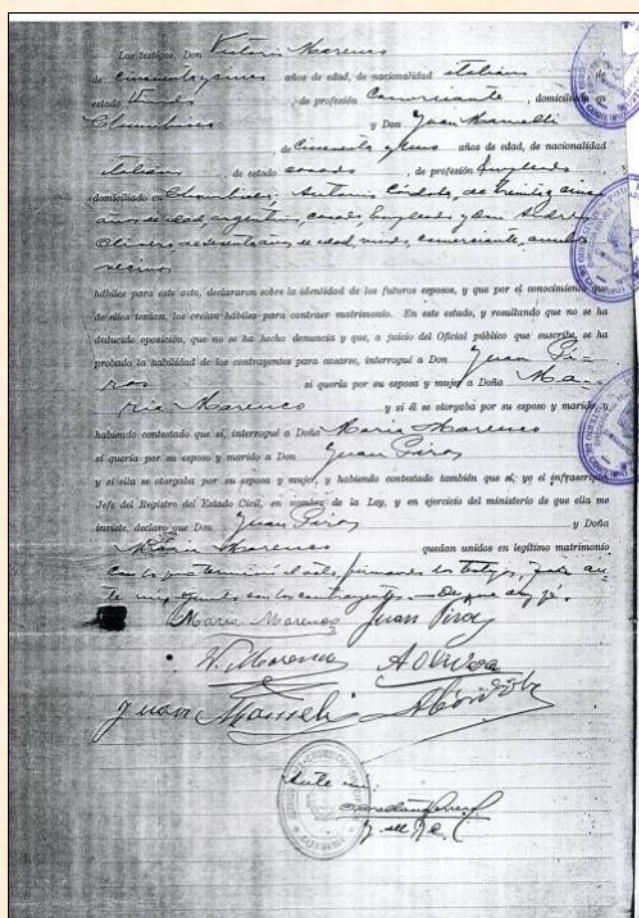 Los testigos, Don Victorio Marenco
de cincuenta y cinco años de edad, de nacionalidad italiano de
estado Viudo de profesión Comerciante, domiciliado en
Chumbicha y Don Juan Mameli
de cincuenta y uno años de edad, de nacionalidad
italiano, de estado casado, de profesión Empleado,
domiciliado en Chumbicha, Antonio Córdoba, de treinta y cinco
años de edad, argentino, casado, Empleado y don Andres
de sesenta años de edad, viudo, comerciante, ambos
vecinos
hábiles para este acto, declararon sobre la identidad de los futuros esposos, y que por el conocimiento que
de ellos tenían, los creían hábiles para contraer matrimonio. En este estado, y resultando que no se ha
deducido oposición, que no se ha hecho denuncia y que, a juicio del Oficial público que suscribe, se ha
probado la habilidad de los contrayentes para casarse, interrogué a Don Juan Pi-
ras si quería por su esposa y mujer a Doña Ma-
ria Marenco y si él se otorgaba por su esposo y marido, y
habiendo contestado que sí, interrogué a Doña Maria Marenco
si quería por su esposo y marido a Don Juan Piras
y si ella se otorgaba por su esposa y mujer, y habiendo contestado también que sí, yo el infrascripto
Jefe del Registro del Estado Civil, en nombre de la Ley, y en ejercicio del ministerio de que ella me
inviste, declaro que Don Juan Piras y Doña
Maria Marenco quedan unidos en legítimo matrimonio
con lo que terminó el acto, firmando los testigos, an-
te mi, con los contrayentes. — De que doy fé.
Maria Marenco Juan Piras
V. Marenco
Juan Mameli ACórdoba
Ante mi.